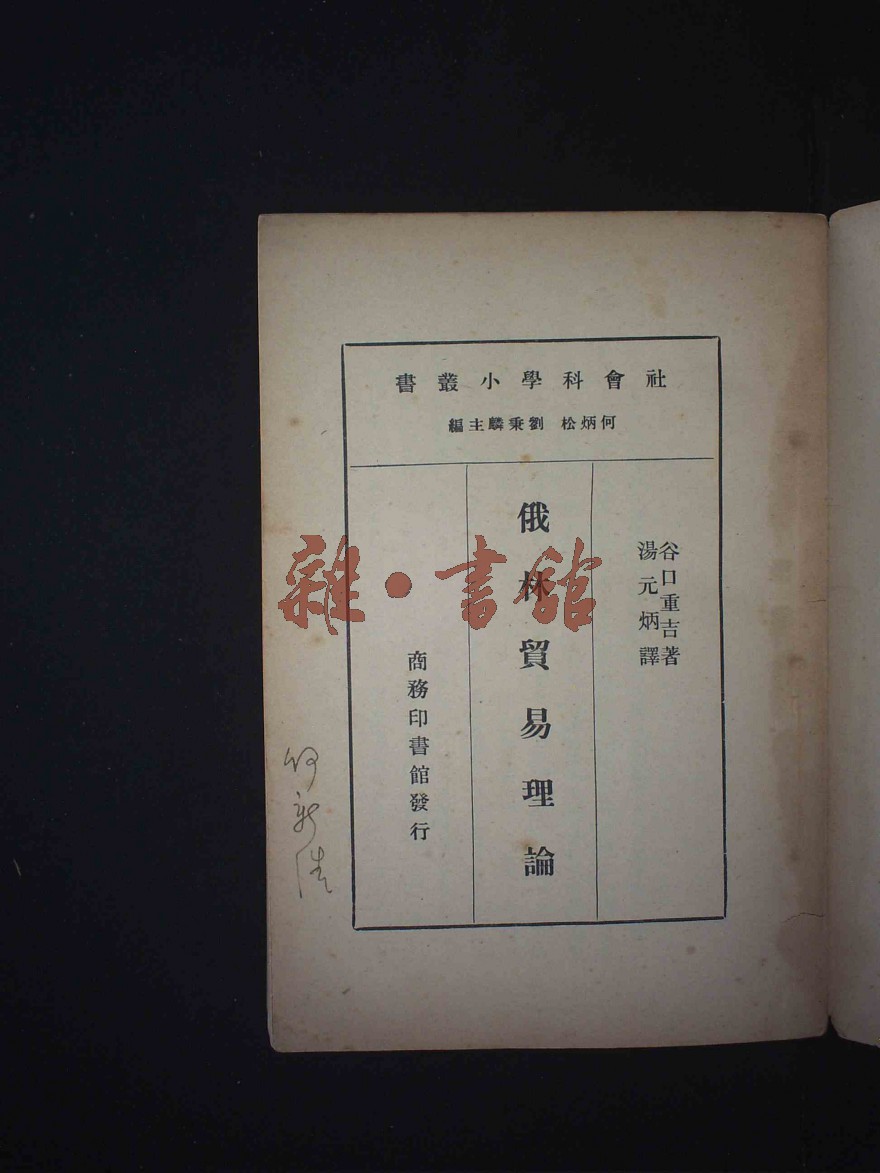 社會科學小叢書
何炳松 劉秉麟主編
谷口重吉著
湯元炳譯
俄林貿易理論
商務印書館發行
雜·書館